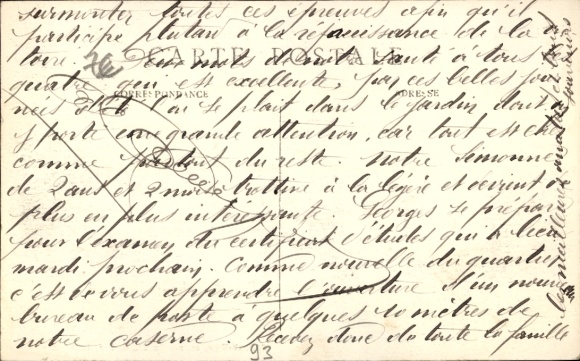 surmonter toutes ces épreuves afin qu'il
participe plutard à la rejouissance de la vic
toire. Deux mots de notre santé à tous
CARTE POSTALE
quatre qui est excellente, par ces belles jour
CORRESPONDANCE
ADRESSE
nées d'été on se plait dans le jardin dont
j porte une grande attention, car tout est cher
comme partout du reste. Notre Simonne
de 2 ans et 2 mois trottine à la légère et devient de
plus en plus intéressante. Georges se prépare
pour l'examen du certificat d'études qui a lieu
mardi prochain. Comme nouvelle du quartier
c'est de vous apprendre l'ouverture d'un nouveau
bureau de poste à quelques 10 mètres de
notre caserne. Recevez donc de toute la famille
les meilleures amitiés et bons
93